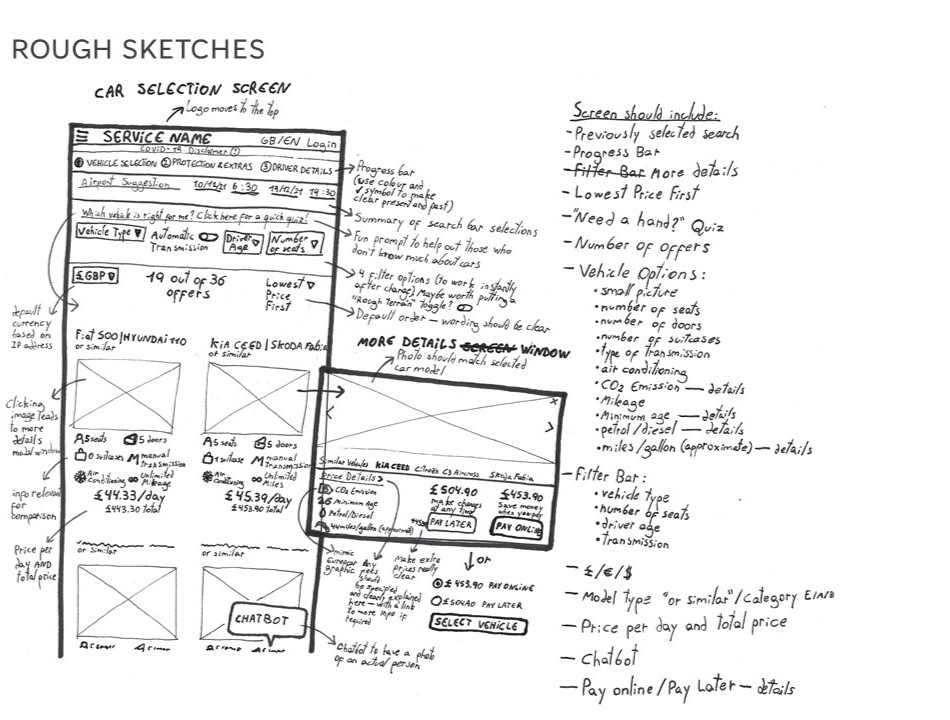 ROUGH SKETCHES
CAR SELECTION SCREEN
Logo moves to the top
SERVICE NAME GB/EN Login
COVID-19 Disclaimer (!)
① VEHICLE SELECTION ② PROTECTION & EXTRAS ③ DRIVER DETAILS
Airport Suggestion 10/12/21 6:30 19/12/21 19:30
Which vehicle is right for me? Click here for a quick quiz!
Vehicle Type ▽
Automatic
Transmission
Driver ▽
Age
Number ▽
of seats
£GBP ▽
19 out of 36
offers
Lowest ▽
Price
First
Fiat 500/HYUNDAI i10
or similar
KIA CEED | SKODA Fabia
or similar
5 seats 5 doors
0 suitcases M manual
transmission
Air
Conditioning
∞ Unlimited
Mileage
£44.33/day
£443.30 total
5 seats 5 doors
1 suitcase M manual
transmission
Air
Conditioning
∞ Unlimited
Miles
£45.39/day
£453.90 total
or similar
or similar
CHATBOT
default
currency
based on
IP address
Clicking
image leads
to more
details
modal window
info relevant
for
comparison
Price per
day AND
total price
Progress bar
(use colour and
✓ symbol to make
clear present and past)
Summary of search bar selections
Fun prompt to help out those who
don't know much about cars
4 filter options (to work instantly
after change) Maybe worth putting a
"Rough terrain" toggle?
Default order — wording should be clear
MORE DETAILS SCREEN WINDOW
Photo should match selected
car model
x
<
>
Similar Vehicles KIA CEED Citroën C3 Aircross Skoda Fabia
Price Details >
CO2 Emission
Minimum Age
Petrol/Diesel
44 miles/gallon (approximate)
£504.90
make changes
at any time
PAY LATER
£453.90
Save money
when you pay
PAY ONLINE
mimic
European
graphic
Any
fees
should
be specified
and clearly explained
here — with a link
to more info if
required
Make extra
prices really
clear
or
£453.90 PAY ONLINE
£504.90 PAY LATER
SELECT VEHICLE
Chatbot to have a photo
of an actual person
Screen should include:
- Previously selected search
- Progress Bar
- Filter Bar More details
- Lowest Price First
- "Need a hand?" Quiz
- Number of offers
- Vehicle Options:
• small picture
• number of seats
• number of doors
• number of suitcases
• type of transmission
• air conditioning
• CO2 Emission — details
• Mileage
• Minimum age — details
• petrol/diesel — details
• miles/gallon (approximate) — details
- Filter Bar:
• vehicle type
• number of seats
• driver age
• transmission
- £/€/$
- Model type "or similar"/Category
- Price per day and total price
- Chatbot
- Pay online/Pay Later — details